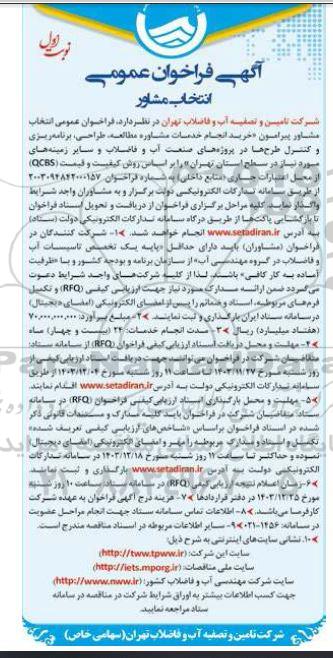 نوبت اول
آگهی فراخوان عمومی
انتخاب مشاور
شرکت تامین و تصفیه آب و فاضلاب تهران در نظر دارد، فراخوان عمومی انتخاب
مشاور پیرامون «خرید انجام خدمات مشاوره مطالعه، طراحی، برنامه‌ریزی
و کنترل طرح‌ها در پروژه‌های صنعت آب و فاضلاب و سایر زمینه‌های
مورد نیاز در سطح استان تهران» را بر اساس روش کیفیت و قیمت (QCBS)
از محل اعتبارات جاری (منابع داخلی) به شماره فراخوان
از طریق سامانه تدارکات الکترونیکی دولت برگزار و به مشاوران واجد شرایط
واگذار نماید. کلیه مراحل برگزاری فراخوان از دریافت و تحویل اسناد فراخوان
تا بازگشایی پاکت‌ها از طریق درگاه سامانه تدارکات الکترونیکی دولت (ستاد)
به آدرس www.setadiran.ir انجام خواهد شد. ۱- شرکت کنندگان در
فراخوان (مشاوران) باید دارای حداقل «پایه یک تخصص تاسیسات آب
و فاضلاب در گروه مهندسی آب» از سازمان برنامه و بودجه کشور و با «ظرفیت
آماده به کار کافی» باشند. لذا از کلیه شرکت‌های واجد شرایط دعوت
می‌گردد ضمن ارائه مدارک مورد نیاز جهت ارزیابی کیفی (RFQ) و تکمیل
فرم‌های مربوطه، اسناد و ضمائم را پس از امضای الکترونیکی (امضای دیجیتال)
در سامانه ستاد ایران بارگذاری و ثبت نمایند. ۲- مبلغ برآورد: ۷۰,۰۰۰,۰۰۰,۰۰۰
(هفتاد میلیارد) ریال ۳- مدت انجام خدمات: ۲۴ (بیست و چهار) ماه
۴- مهلت و محل دریافت اسناد ارزیابی کیفی فراخوان (RFQ) از سامانه ستاد:
متقاضیان شرکت در فراخوان می‌توانند جهت دریافت اسناد ارزیابی کیفی از
روز شنبه مورخ ۱۴۰۳/۱۱/۲۷ تا ساعت ۱۹ روز شنبه مورخ ۱۴۰۳/۱۲/۰۴ از طریق
سامانه تدارکات الکترونیکی دولت به آدرس www.setadiran.ir اقدام نمایند.
۵- مهلت و محل بارگذاری اسناد ارزیابی کیفی فراخوان (RFQ) در سامانه
ستاد: متقاضیان شرکت در فراخوان باید کلیه مدارک و مستندات قانونی ذکر
شده در اسناد فراخوان براساس «شاخص‌های ارزیابی کیفی تعریف شده»
تکمیل و اسناد و مدارک مربوطه را مهر و امضای الکترونیکی (امضای دیجیتال)
نموده و حداکثر تا ساعت ۱۹ روز شنبه مورخ ۱۴۰۳/۱۲/۱۸ در سامانه تدارکات
الکترونیکی دولت به آدرس www.setadiran.ir بارگذاری و ثبت نمایند.
۶- زمان اعلام نتیجه ارزیابی کیفی (RFQ) در سامانه ستاد: ساعت ۱۰ روز شنبه
مورخ ۱۴۰۳/۱۲/۲۵ در دفتر قراردادها ۷- هزینه درج آگهی فراخوان به عهده شرکت
کارفرما می‌باشد. ۸- اطلاعات تماس سامانه ستاد جهت انجام مراحل عضویت
در سامانه: ۱۴۵۶-۰۲۱ ۹- سایر اطلاعات مربوطه در اسناد مناقصه مندرج است.
۱۰- نشانی سایت‌های اینترنتی به شرح ذیل:
سایت این شرکت: (http://tww.tpww.ir)
سایت ملی مناقصات: (http://iets.mporg.ir)
سایت شرکت مهندسی آب و فاضلاب کشور: (http://www.nww.ir)
جهت کسب اطلاعات بیشتر به اوراق شرایط شرکت در مناقصه در سامانه
ستاد مراجعه نمایید.
شرکت تامین و تصفیه آب و فاضلاب تهران (سهامی خاص)